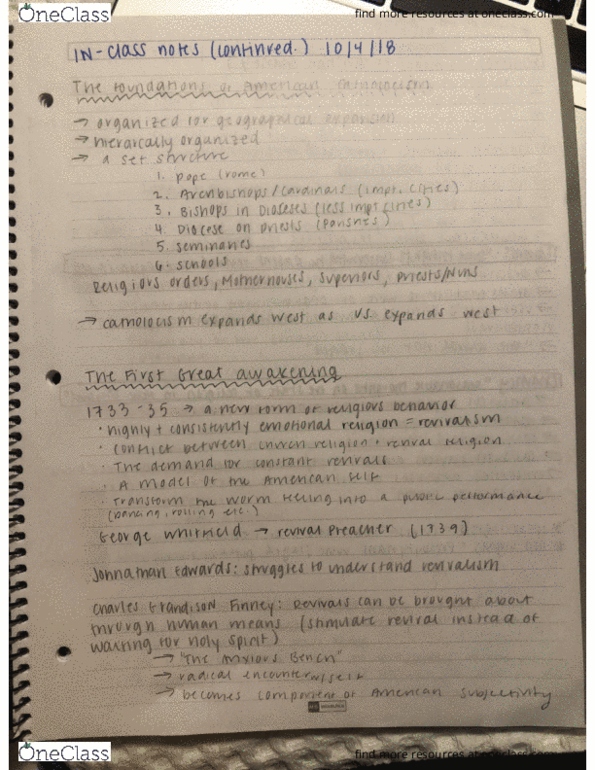 OneClass
find more resources at oneclass.com
IN-Class notes (continued.) 10/4/18
The Foundations of American Catholicism
→ organized for geographical expansion
→ hierarcally organized
→ a set structure
1. Pope (rome)
2. Archbishops/Cardinals (impt. cities)
3. Bishops in Dioceses (less impt cities)
4. Diocese on Priests (Parishes)
5. Seminaries
6. Schools
Religious orders, Motherhouses, Superiors, Priests/Nuns
→ catholocism expands west as US expands west
The First Great Awakening
1733-35 → a new form of religious behavior
· highly + consistently emotional religion = revivalism
· conflict between church religion + revival religion
· The demand for constant revivals
· A model of the American self
· Transform the worm feeling into a public performance
(dancing, rolling etc.)
George Whitfield → revival preacher (1739)
Johnathan Edwards: struggles to understand revivalism
Charles Grandison Finney: Revivals can be brought about
through human means (stimulate revival instead of
waiting for Holy Spirit)
→ "The Anxious Bench"
→ radical encounter w/self
→ becomes component of American subjectivity
OneClass
find more resources at oneclass.com